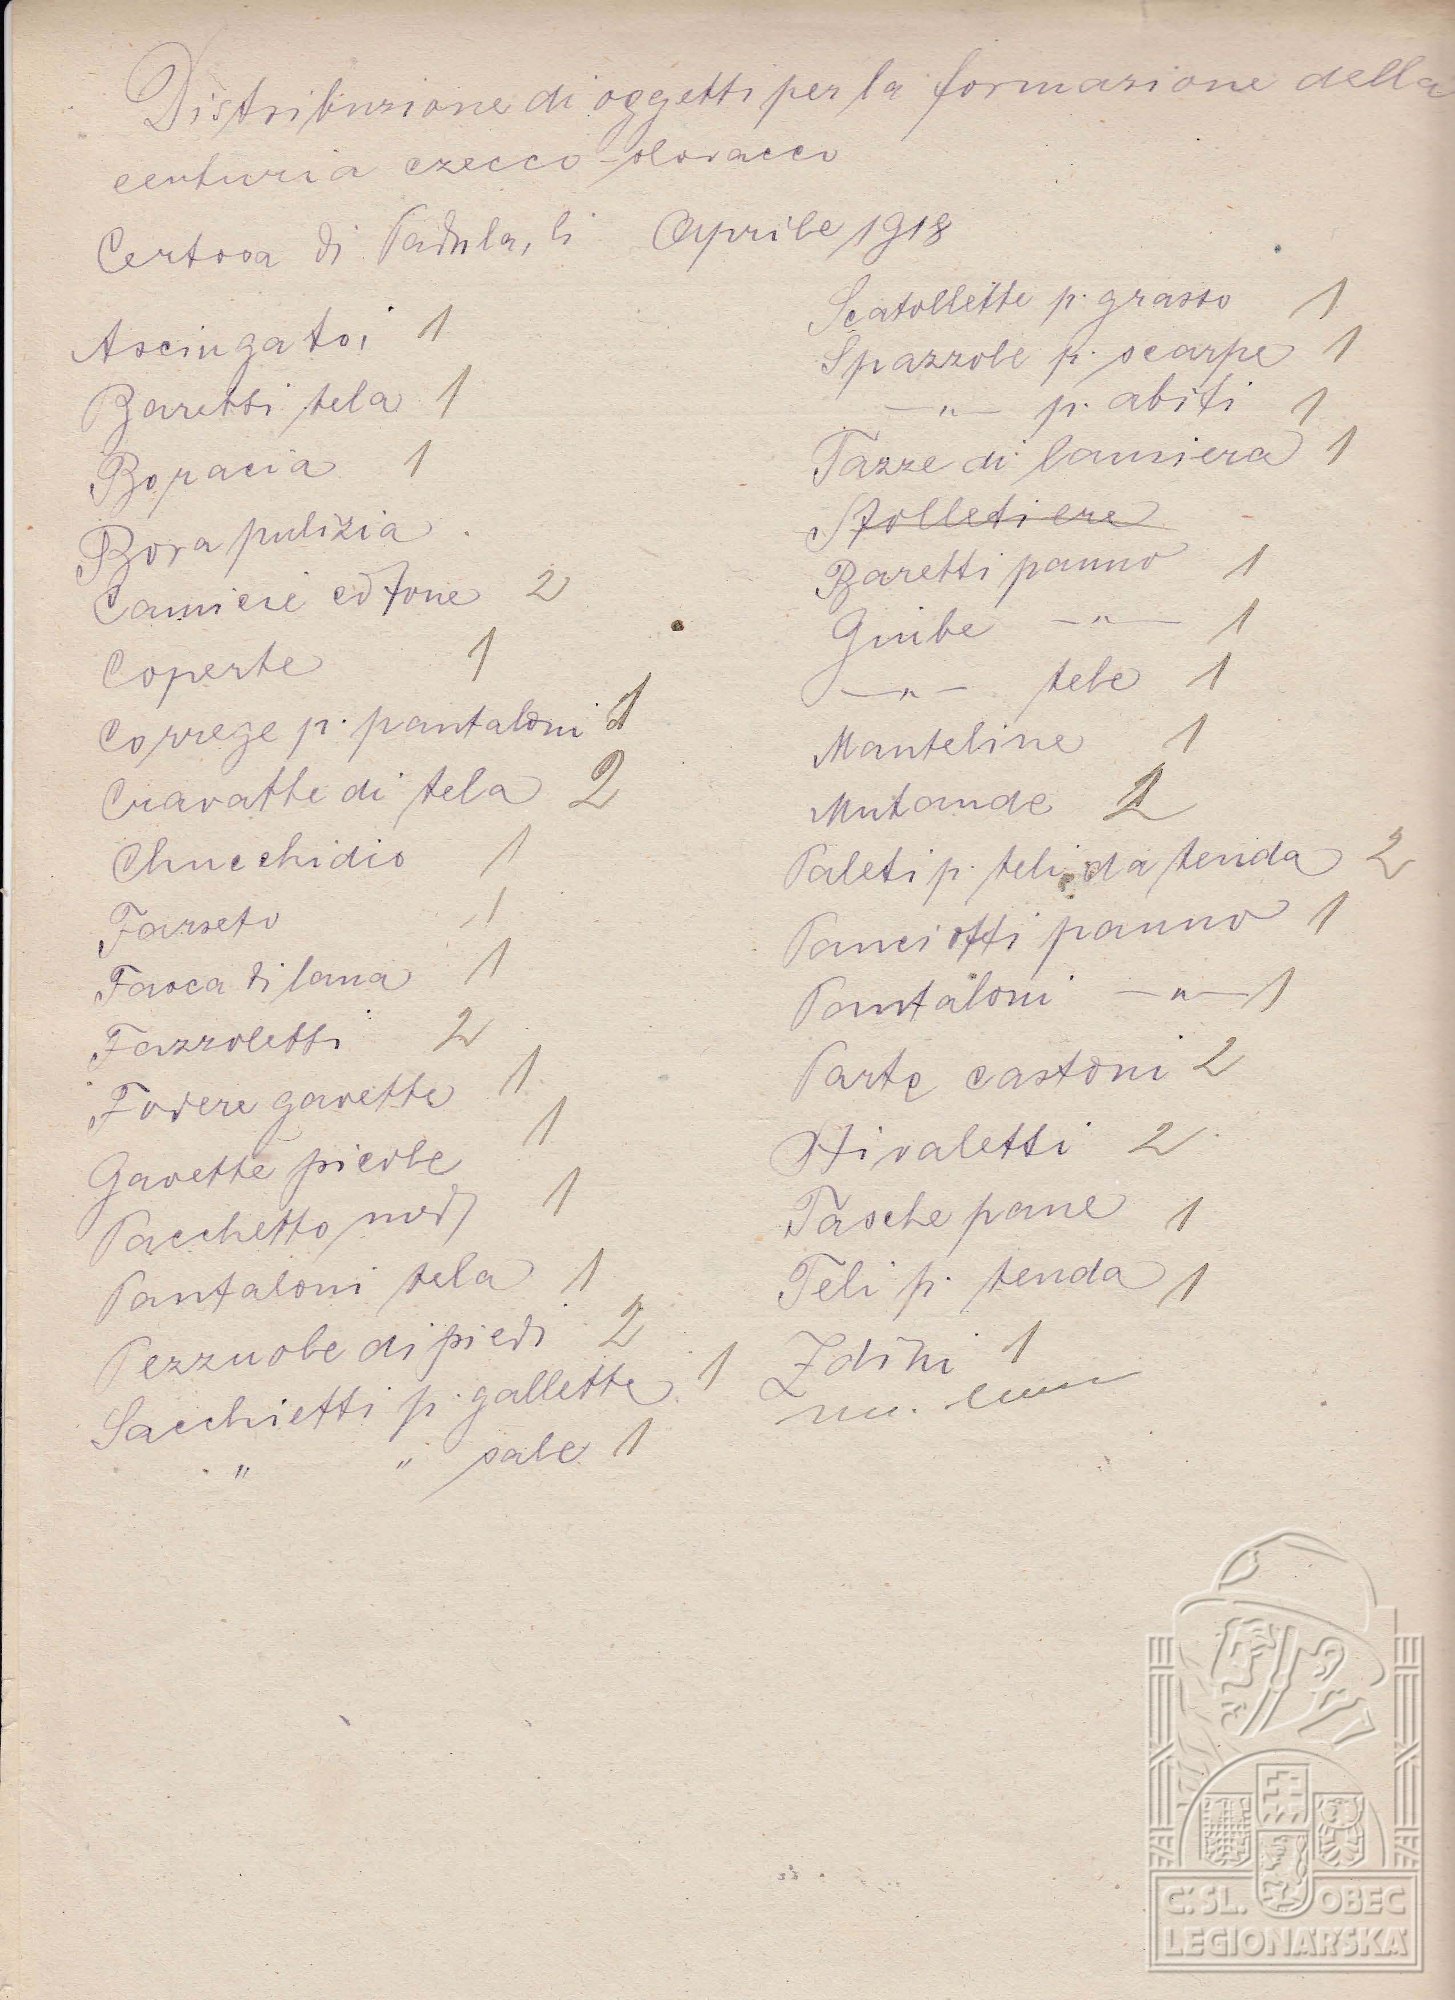 Distribuzione di oggetti per la formazione della
centuria czecco-slovacco
Certosa di Padula, li Aprile 1918
Asciugatoi 1
Baretti tela 1
Boracia 1
Borsa pulizia
Camicie cotone 2
Coperte 1
Correge p. pantaloni 1
Cravatte di tela 2
Chucchidio 1
Farseto 1
Fasca di lana 1
Fazzoletti 2
Fodere gavette 1
Gavette picole 1
Pacchetto med 1
Pantaloni tela 1
Pezzuole di piedi 2
Sacchietti p. gallette 1
" " sale 1
Scatollette p. grasso 1
Spazzole p. scarpe 1
—"— p. abiti 1
Tazze di lamiera 1
Stolletiere
Baretti panno 1
Giube —"— 1
—"— tele 1
Manteline 1
Mutande 2
Paleti p. teli da tenda 2
Panciotti panno 1
Pantaloni —"— 1
Parte castoni 2
Stivaletti 2
Tasche pane 1
Teli p. tenda 1
Zdini 1
C.SL. OBEC
LEGIONÁŘSKÁ